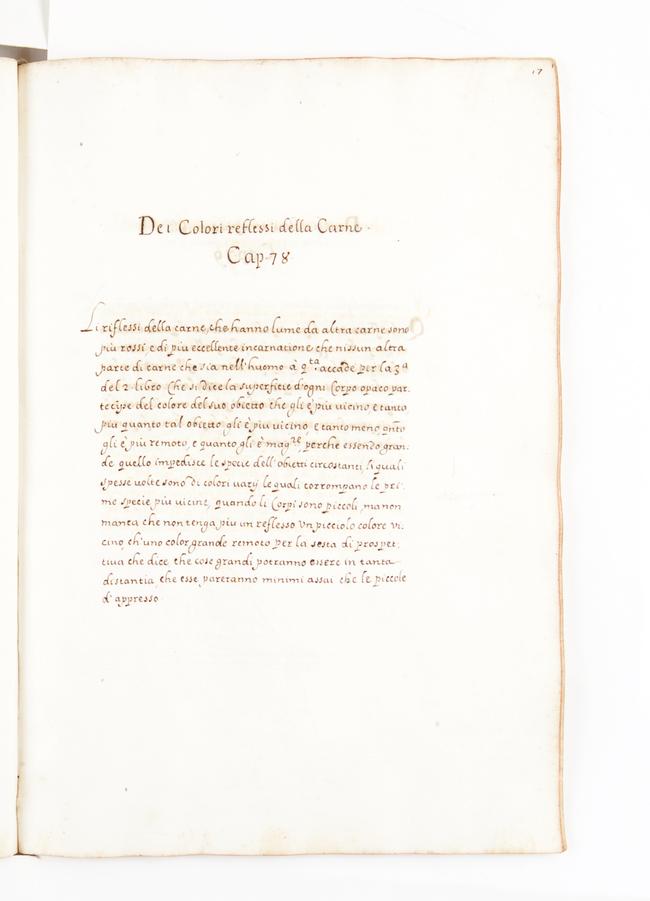 17
Dei Colori reflessi della Carne.
Cap. 78
Li riflessi della carne, che hanno lume da altra carne sono
più rossi, e di più eccellente incarnatione che nissun altra
parte di carne che sia nell'huomo à q.ta accade per la 3a
del 2 libro Che si dice la superficie d'ogni Corpo opaco par.
tecipe del colore del suo obietto che gli è più vicino e tanto
più quanto tal obietto gli è più vicino, e tanto meno qnto
gli è più remoto, e quanto gli è mag.re, perche essendo gran:
de quello impedisce le specie dell'obietti circostanti, li quali
spesse volte sono di colori varij le quali corrompano le pri:
me specie più vicine, quando li Corpi sono piccoli, ma non
manca che non tenga più un reflesso Un picciolo colore vi:
cino, ch'uno color grande remoto per la sesta di prospet:
tiva che dice, che cose grandi potranno essere in tanta
distantia che esse pareranno minimi assai che le piccole
d'appresso